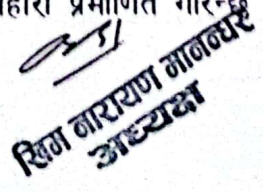 प्रमाणित गरिन्छ
खिम नारायण मानन्धर
अध्यक्ष